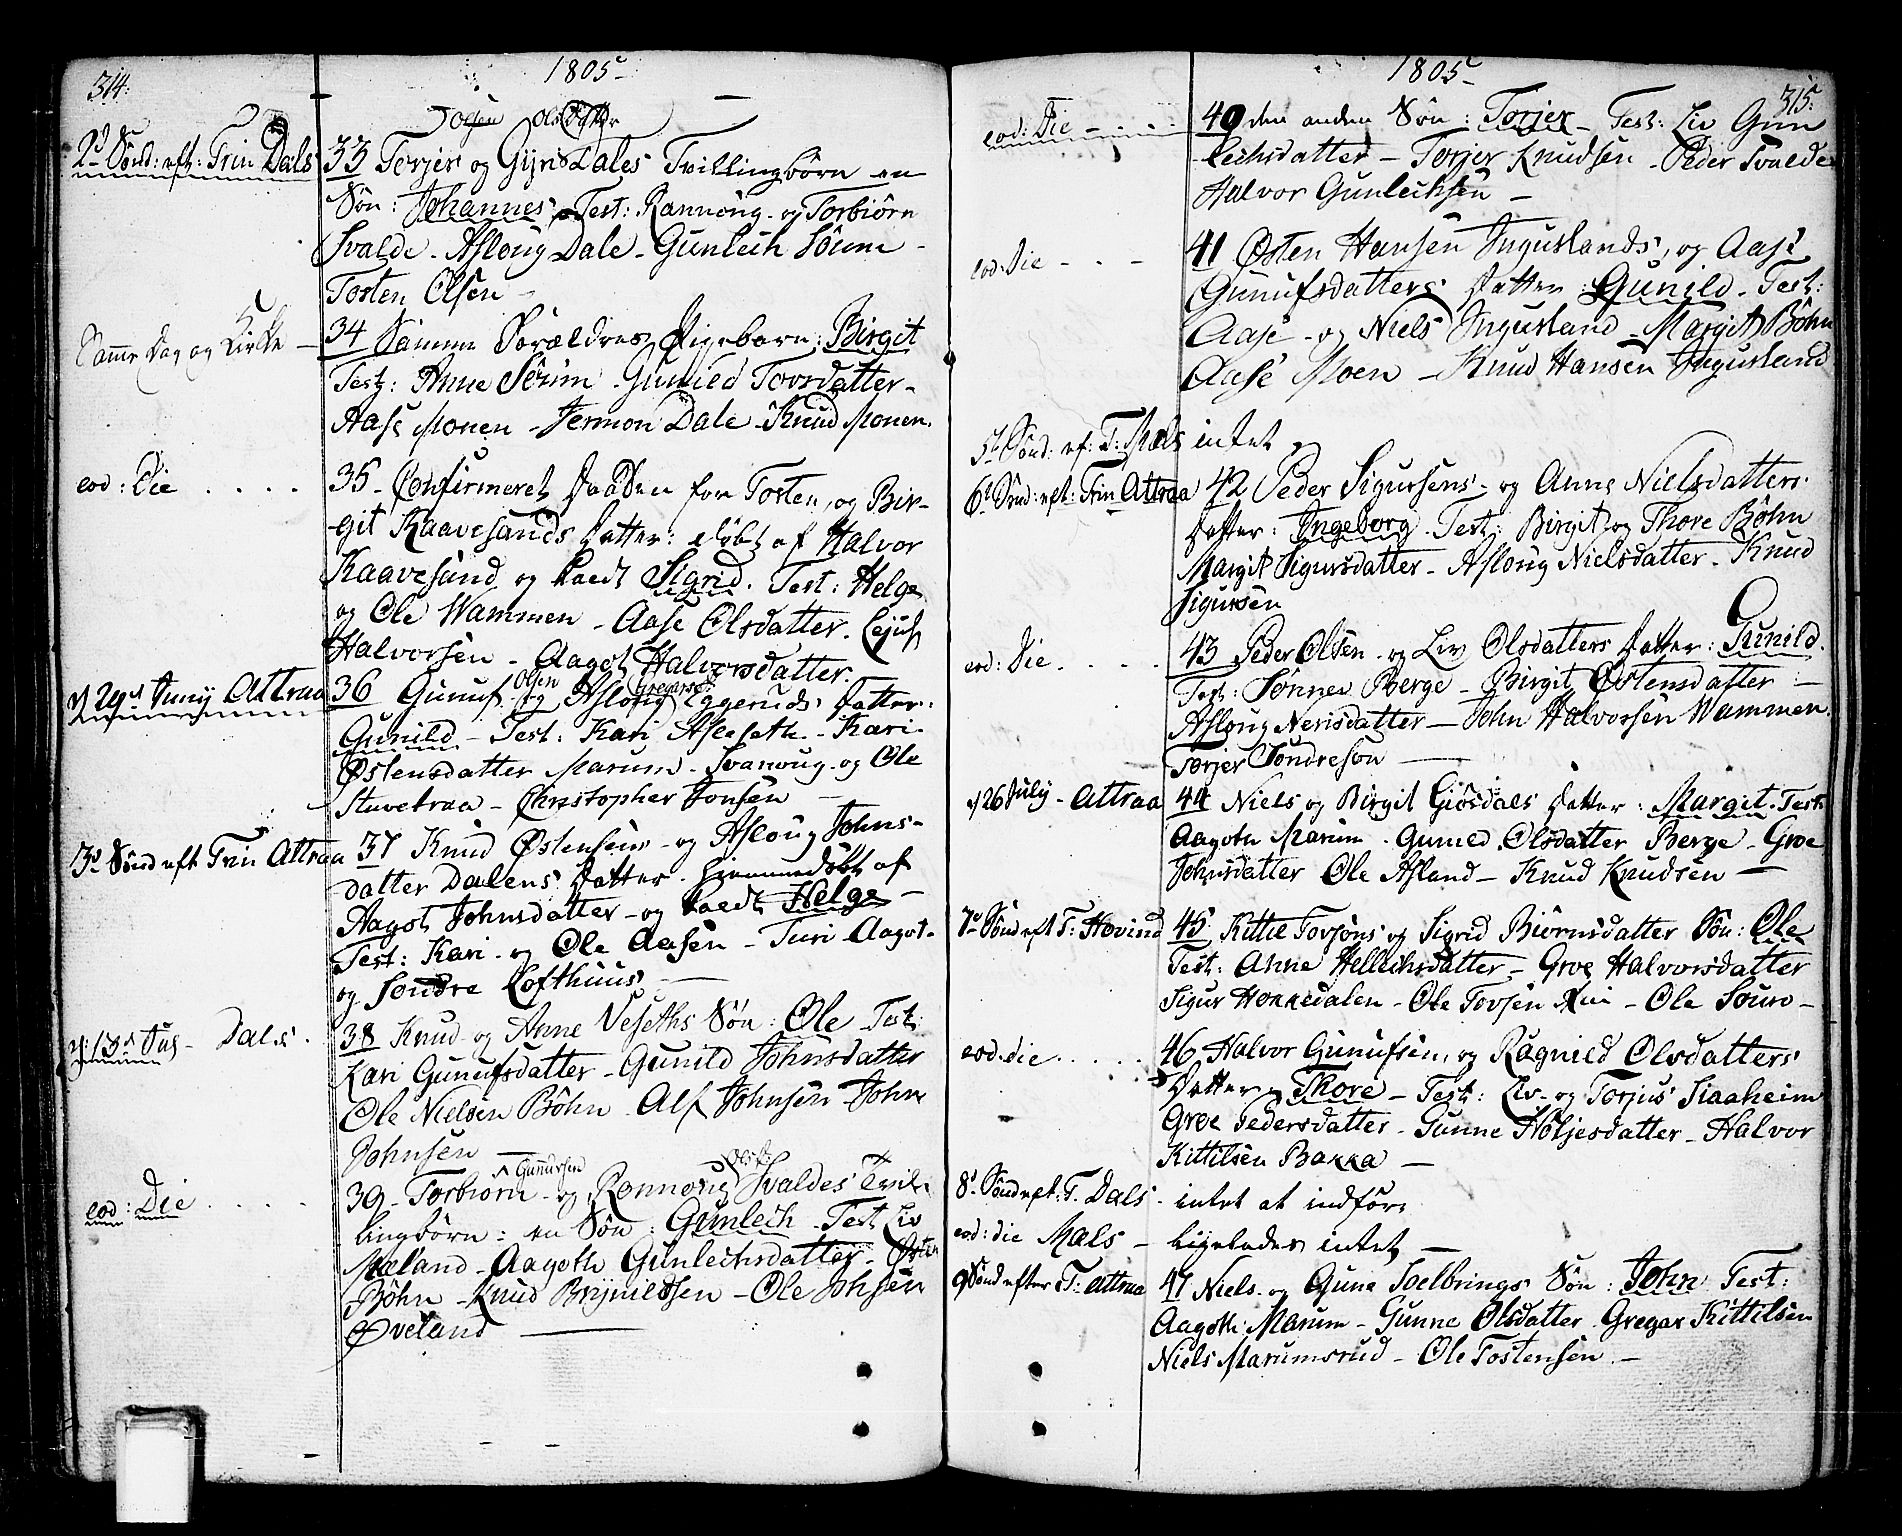 314.
1805
2d Sønd: eft: Trin Dals
Olsdatter
33 Torjer og Gyri Dales Tvillingbørn en
Søn: Johannes. Test: Rannoug og Torbiørn
Svalde - Asloug Dale - Gunlech Sønne -
Tosten Olsen -
Samme Dag og Kirke -
34 Samme Forældres Pigebarn: Birgit
Test: Anne Gunild Tovsdatter -
Aase Monen - Jermon Dale - Knud Monen.
eod: Die . . . .
35 - Confirmeret Daaben for Tosten, og Bir-
git Raavesands Datter: døbt af Halvor
Kaavesand og kaldt Sigrid. Test: Helge
og Ole Wammen - Aase Olsdatter.
Halvorsen - Aagot Halvorsdatter.
Olsen Gregarsd:
d 29d Juny Attraa
36 Gunuf og Aslong Eggeruds Datter:
Gunild - Test: Kari Aseseth - Kari
Østensdatter Marum - Svanoug og Ole
Stuvetraa - Christopher Jonsen -
3d Sønd eft Trin Attraa
37 Knud Østensens og Asloug Johns-
datter Dalens Datter hiemmedøbt af
Aagot Johnsdatter - og kaldt Helge -
Test: Kari - og Ole Aasen - Turi Aagot -
og Sondre Lofthuus -
Dals.
38 Knud og Anne Veseths Søn: Ole - Test:
Kari Gunufsdatter - Gunild Johnsdatter
Ole Nielsen Bøhn - Alf Johnsen - John
Johnsen -
Gunufsen
eod: Die . . . .
39 - Torbiørn - og Rannoug Svaldes Tvil-
lingbørn: en Søn: Gunlech - Test Liv
Mæland - Aagoth Gunlechsdatter - Østen
Bøhn - Knud Brynildsen - Ole Johsen
Øveland
315.
1805
eod: Die - - - -
40 den anden Søn: Torjer - Test: Liv Gun
lechsdatter - Torjer Knudsen - Peder Svalde
Halvor Gunlechsen -
eod: Die - - -
41 Østen Hansen Ingulands, og Aase
Gunufsdatters Datter: Gunild - Test:
Aase - og Niels Ingusland - Margit Bøhn
Aase Moen - Knud Hansen Ingusland
5t Sønd: ef: T: Mæls intet
6t Sønd: eft: Trin Attraa
42 Peder Sigursens - og Anne Nielsdatters.
Datter: Ingeborg. Test: Birgit og Thore Bøhn
Margit Sigursdatter - Asloug Nielsdatter - Knud
Sigursen
eod: Die . . . .
43 Peder Olsen - og Liv Olsdatters Datter: Gunild.
Test: Sønnev Berge - Birgit Østensdatter -
Asloug Nerisdatter - John Halvorsen Wammen
Torjer Sondreson
d 26 July - Attraa
44 Niels og Birgit Giøsdals Datter: Margit - Test
Aagoth Marum - Gunild Olsdatter Berge - Groe
Johnsdatter Ole Asland - Knud Knudsen -
7d Sønd eft T: Hovind
45 Kittil Tovsøns og Sigrid Biørnsdatter Søn: Ole
Test: Anne Hellechsdatter - Groe Halvorsdatter
Sigur Honnedalen - Ole Tovsen - Ole
eod: die . . . . .
46 Halvor Gunufsen, og Ragnild Olsdatters
Datter Thore - Test: Liv - og Torjus Slaaheim
Groe Pedersdatter - Gunne Høljesdatter - Halvor
Kittilsen Bakka -
8d Sønd eft: T. Dals - intet at indføre
eod: die Mæls - ligeledes intet -
9 Sønd efter T: Attraa
47 Niels - og Gune Soelbrings Søn: John Test:
Aagoth: Marum - Gunne Olsdatter Gregar Kittilsen
Niels Marumsrud - Ole Tostensen. -